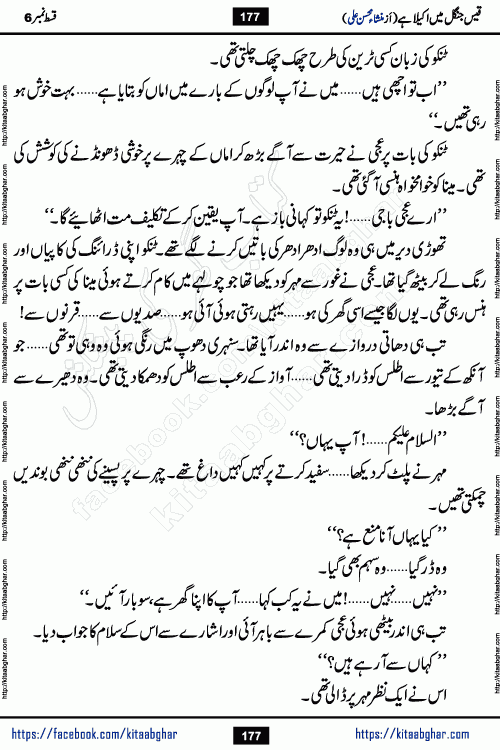 قیس جنگل میں اکیلا ہے (از منشاء محسن علی)
177
قسط نمبر 6
ٹنکو کی زبان کسی ٹرین کی طرح چھک چھک چلتی تھی۔
’’اب تو اچھی ہیں...... میں نے آپ لوگوں کے بارے میں اماں کو بتایا ہے...... بہت خوش ہو
رہی تھیں۔‘‘
ٹنکو کی بات پر عجی نے حیرت سے آگے بڑھ کر اماں کے چہرے پر خوشی ڈھونڈنے کی کوشش کی
تھی۔ مینا کو خوامخواہ ہنسی آ گئی تھی۔
’’ارے عجی باجی......! یہ ٹنکو تو کہانی باز ہے۔ آپ یقین کر کے تکلیف مت اٹھائیے گا۔‘‘
تھوڑی دیر میں ہی وہ لوگ ادھر ادھر کی باتیں کرنے لگے تھے۔ ٹنکو اپنی ڈرائنگ کی کاپیاں اور
رنگ لے کر بیٹھ گیا تھا۔ عجی نے غور سے مہر کو دیکھا تھا جو چولہے میں کام کرتے ہوئی مینا کی کسی بات پر
ہنس رہی تھی۔ یوں لگا جیسے اسی گھر کی ہو...... یہیں رہتی ہوئی آئی ہو...... صدیوں سے...... قرنوں سے!
تب ہی دھاتی دروازے سے وہ اندر آیا تھا۔ سنہری دھوپ میں رنگی ہوئی وہ وہی تو تھی...... جو
آنکھ کے تیور سے اطلس کو ڈرا دیتی تھی...... آواز کے رعب سے اطلس کو دھمکا دیتی تھی۔ وہ دھیرے سے
آگے بڑھا۔
’’السلام علیکم......! آپ یہاں؟‘‘
مہر نے پلٹ کر دیکھا...... سفید کرتے پر کہیں کہیں داغ تھے۔ چہرے پر پسینے کی ننھی ننھی بوندیں
چمکتی تھیں۔
’’کیا یہاں آنا منع ہے؟‘‘
وہ ڈر گیا...... وہ سہم بھی گیا۔
’’نہیں...... نہیں......! میں نے یہ کب کہا...... آپ کا اپنا گھر ہے، سو بار آئیں۔‘‘
تب ہی اندر بیٹھی ہوئی عجی کمرے سے باہر آئی اور اشارے سے اس کے سلام کا جواب دیا۔
’’کہاں سے آ رہے ہیں؟‘‘
اس نے ایک نظر مہر پر ڈالی تھی۔
https://facebook.com/kitaabghar
177
https://kitaabghar.com
http://kitaabghar.com